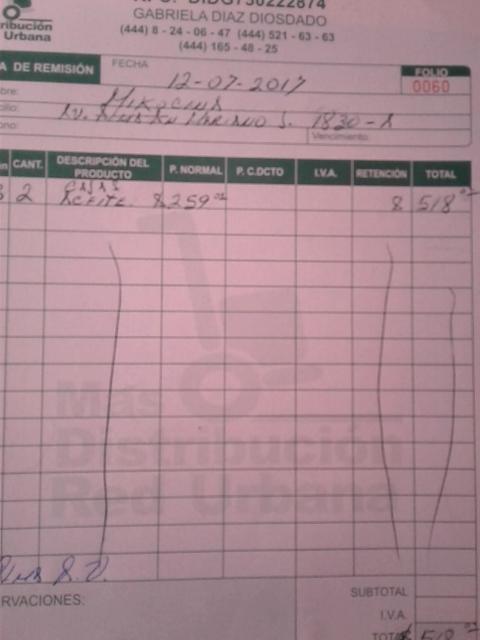 R.F.C. DIDG730222874
GABRIELA DIAZ DIOSDADO
tribución
Urbana
(444) 8 - 24 - 06 - 47 (444) 521 - 63 - 63
(444) 165 - 48 - 25
A DE REMISIÓN
FECHA
12-07-2017
FOLIO
0060
bre:
Mikocina
Av. Mariano J. 1830-A
Vencimiento:
CANT.
DESCRIPCIÓN DEL PRODUCTO
P. NORMAL
P. C.DCTO
I.V.A.
RETENCIÓN
TOTAL
2
CAJAS
Aceite
$259.00
$ 518.00
Más
Distribución
Red Urbana
RVACIONES:
SUBTOTAL
I.V.A.
TOTAL
518